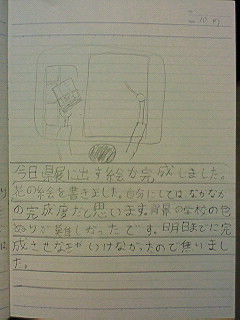 今日県展に出す絵が完成しました。
花の絵を書きました。自分にしてはなかなか
の完成度だと思います。背景の学校の色
ぬりが難しかったです。明日までに完
成させなきゃいけなかったので焦りまし
た。